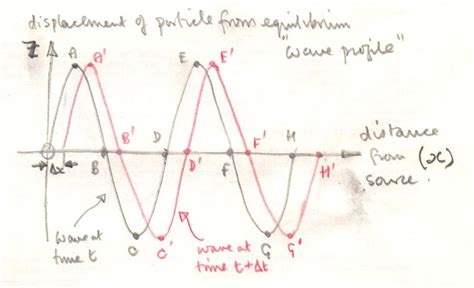 displacement of particle from equilibrium
"wave profile"
Z
A
A'
E
E'
B
B'
D
D'
F
F'
H
H'
Δx
distance
from (x)
source
C
C'
G
G'
wave at
time t
wave at
time t+Δt